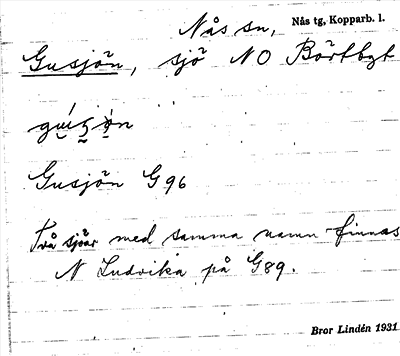 Nås sn, Nås tg, Kopparb. l.
Gusjön, sjö NO Börtbyt
Gusjön G 96
Två sjöar med samma namn finnas
N Ludvika på G 89.
Bror Lindén 1931